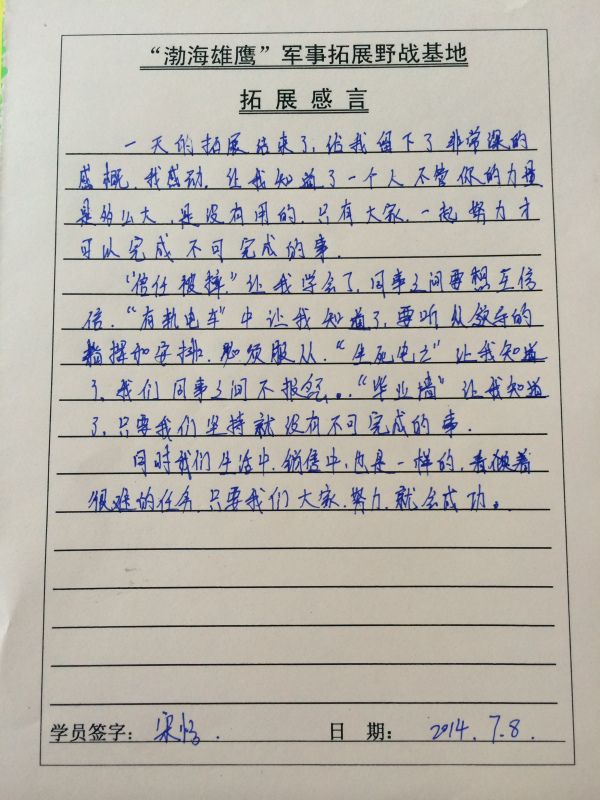 “渤海雄鹰”军事拓展野战基地
拓展感言
一天的拓展结束了,给我留下了非常深的
感概,我感动,让我知道了一个人不管你的力量
是多么大,是没有用的,只有大家,一起努力才
可以完成不可完成的事.
“信任被摔”让我学会了,同事之间要想互信
信.“有轨电车”中让我知道了,要听从领导的
指挥和安排.必须服从.“生死电”让我知道
了,我们同事之间不报怨..“毕业墙”让我知道
了,只要我们坚持就没有不可完成的事.
同时我们生活中,销售中,也是一样的,看似着
很难的任务,只要我们大家,努力,就会成功。
学员签字: 梁 .
日 期: 2014.7.8.